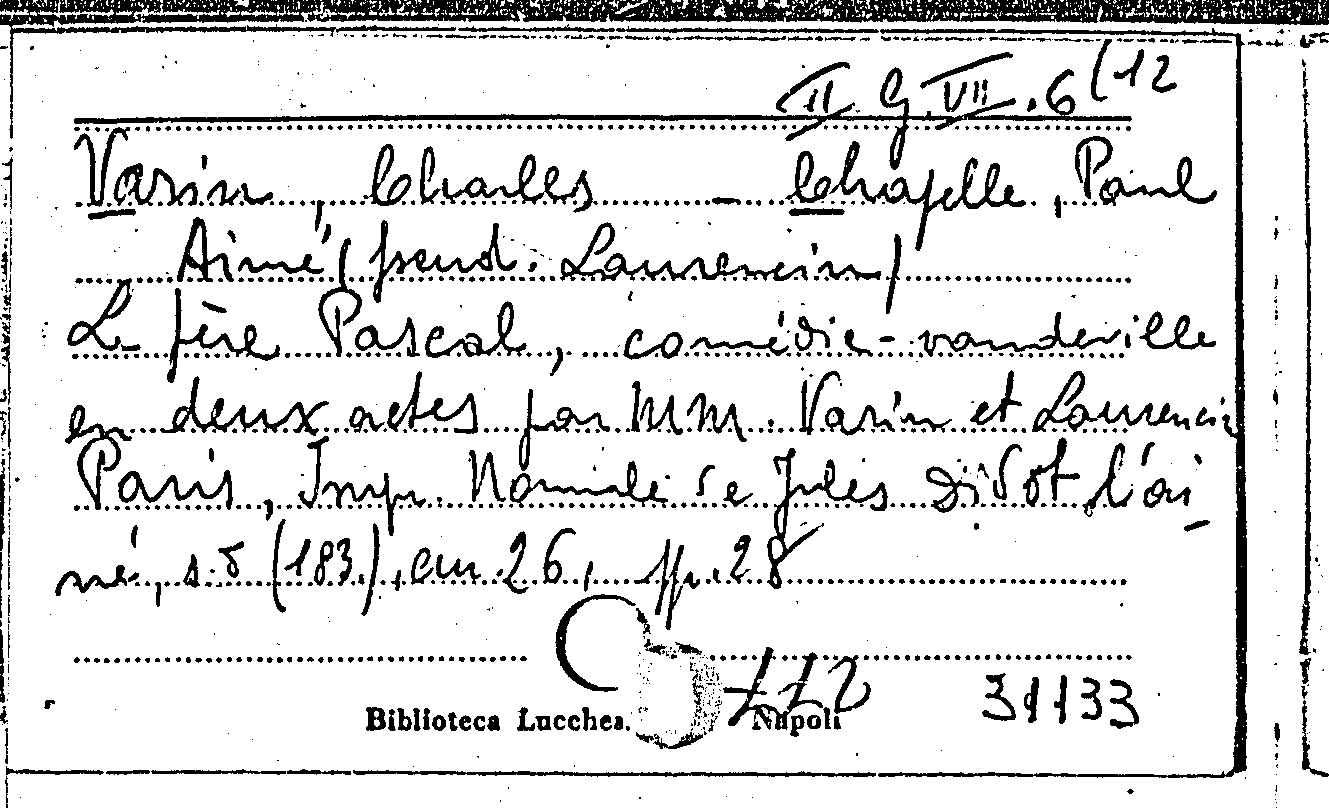 II G. VII. 6 (12
Varin, Charles - Chapelle, Paul
Aimé (pseud. Laurencin)
Le père Pascal, comédie-vaudeville
en deux actes par MM. Varin et Laurencin
Paris, Imp. Normale de Jules Didot l'ai-
né, s.d (183.), cm. 26, pp. 28
Biblioteca Lucchesi Napoli
31133